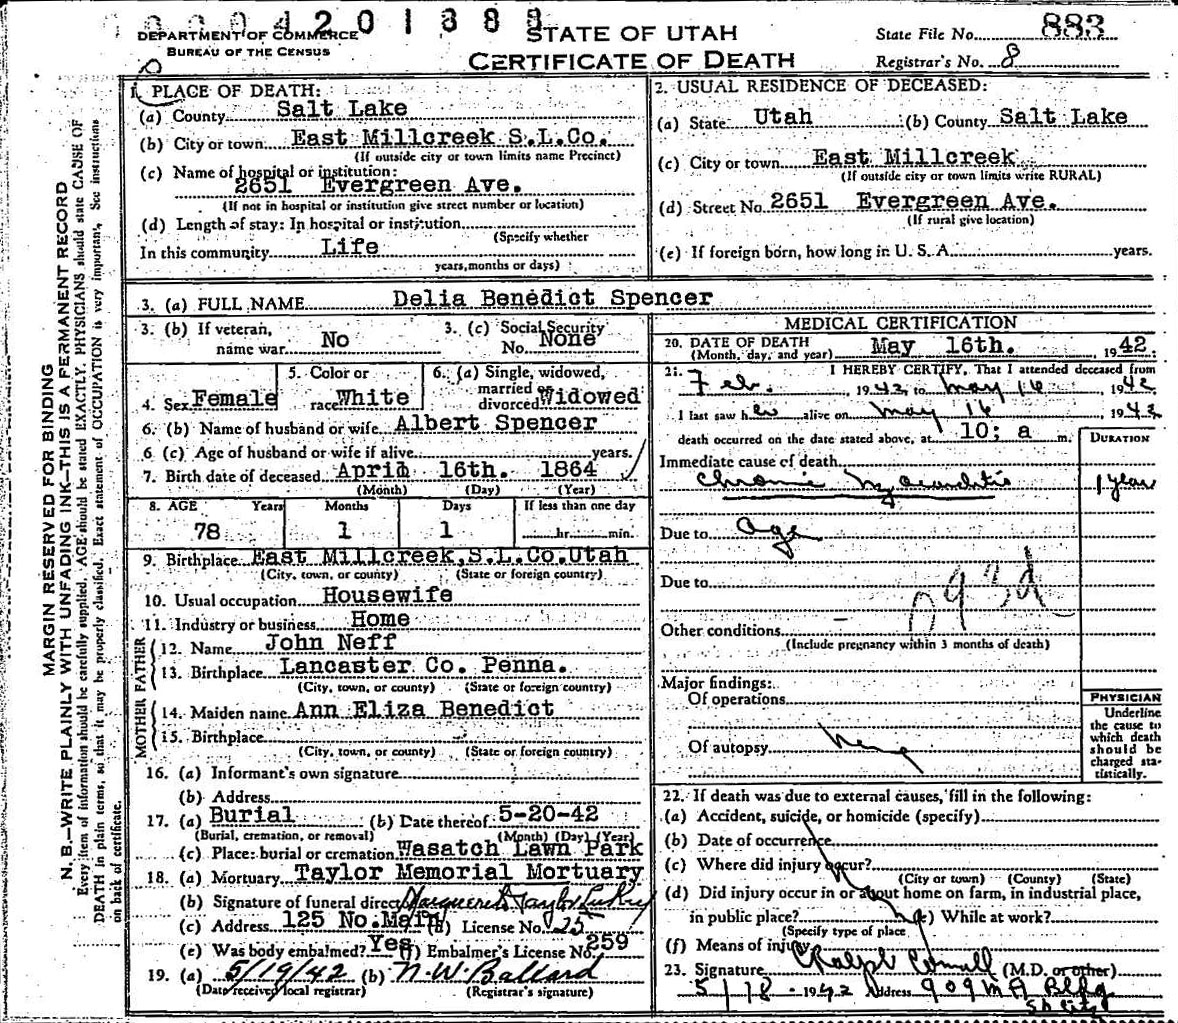 0004201388
DEPARTMENT OF COMMERCE
BUREAU OF THE CENSUS
STATE OF UTAH
CERTIFICATE OF DEATH
State File No. 883
Registrar's No. 8
MARGIN RESERVED FOR BINDING
N. B.—WRITE PLAINLY WITH UNFADING INK—THIS IS A PERMANENT RECORD
Every item of information should be carefully supplied. AGE should be stated EXACTLY. PHYSICIANS should state CAUSE OF
DEATH in plain terms, so that it may be properly classified. Exact statement of OCCUPATION is very important. See instructions
on back of certificate.
1. PLACE OF DEATH:
(a) County Salt Lake
(b) City or town East Millcreek S.L.Co.
(If outside city or town limits name Precinct)
(c) Name of hospital or institution:
2651 Evergreen Ave.
(If not in hospital or institution give street number or location)
(d) Length of stay: In hospital or institution
(Specify whether
In this community Life
years, months or days)
2. USUAL RESIDENCE OF DECEASED:
(a) State Utah (b) County Salt Lake
(c) City or town East Millcreek
(If outside city or town limits write RURAL)
(d) Street No. 2651 Evergreen Ave.
(If rural give location)
(e) If foreign born, how long in U. S. A. years.
3. (a) FULL NAME Delia Benedict Spencer
3. (b) If veteran,
name war No
3. (c) Social Security
No. None
4. Sex Female
5. Color or
race White
6. (a) Single, widowed,
married or
divorced Widowed
6. (b) Name of husband or wife Albert Spencer
6 (c) Age of husband or wife if alive years.
7. Birth date of deceased April 16th. 1864
(Month) (Day) (Year)
8. AGE Years Months Days If less than one day
78 1 1 hr. min.
9. Birthplace East Millcreek, S.L.Co. Utah
(City, town, or county) (State or foreign country)
10. Usual occupation Housewife
11. Industry or business Home
FATHER
12. Name John Neff
13. Birthplace Lancaster Co. Penna.
(City, town, or county) (State or foreign country)
MOTHER
14. Maiden name Ann Eliza Benedict
15. Birthplace
(City, town, or county) (State or foreign country)
16. (a) Informant's own signature
(b) Address
17. (a) Burial (b) Date thereof 5-20-42
(Burial, cremation, or removal) (Month) (Day) (Year)
(c) Place: burial or cremation Wasatch Lawn Park
18. (a) Mortuary Taylor Memorial Mortuary
(b) Signature of funeral director Marguerite Taylor
(c) Address 125 No. Main (d) License No. 25
(e) Was body embalmed? Yes (f) Embalmer's License No. 259
19. (a) 5/19/42 (b) N. W. Ballard
(Date received local registrar) (Registrar's signature)
MEDICAL CERTIFICATION
20. DATE OF DEATH
(Month, day, and year) May 16th. 1942
21. I HEREBY CERTIFY, That I attended deceased from
Feb. 1942 to May 16, 1942
I last saw her alive on May 16 1942
death occurred on the date stated above, at 10; a m.
DURATION
Immediate cause of death
Chronic Myocarditis 1 year
Due to age
Due to
93d
Other conditions
(Include pregnancy within 3 months of death)
Major findings:
Of operations
Of autopsy none
PHYSICIAN
Underline
the cause to
which death
should be
charged sta-
tistically.
22. If death was due to external causes, fill in the following:
(a) Accident, suicide, or homicide (specify)
(b) Date of occurrence
(c) Where did injury occur?
(City or town) (County) (State)
(d) Did injury occur in or about home on farm, in industrial place,
in public place? (e) While at work?
(Specify type of place
(f) Means of injury
23. Signature Ralph (M.D. or other)
5/18 - 1942 Address 909 M A Bldg